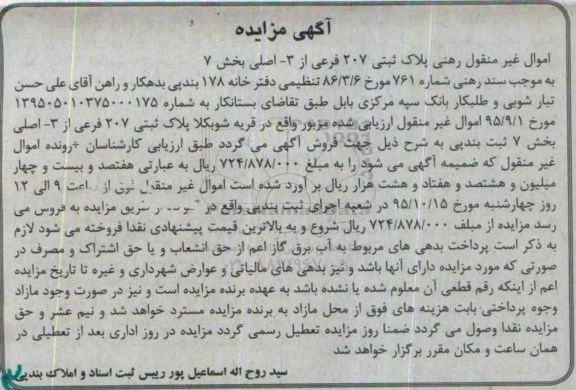 آگهی مزایده
اموال غیر منقول رهنی پلاک ثبتی ۲۰۷ فرعی از ۳- اصلی بخش ۷
به موجب سند رهنی شماره ۷۶۱ مورخ ۸۶/۳/۶ تنظیمی دفتر خانه ۱۷۸ بندپی بدهکار و راهن آقای علی حسن
تبار شوبی و طلبکار بانک سپه مرکزی بابل طبق تقاضای بستانکار به شماره ۱۳۹۵۰۵۰۱۰۳۷۵۰۰۰۱۷۵
مورخ ۹۵/۹/۱ اموال غیر منقول ارزیابی شده مزبور واقع در قریه شوبکلا پلاک ثبتی ۲۰۷ فرعی از ۳- اصلی
بخش ۷ ثبت بندپی به شرح ذیل جهت فروش آگهی می گردد طبق ارزیابی کارشناسان پرونده اموال
غیر منقول که ضمیمه آگهی می شود را به مبلغ ۷۲۴/۸۷۸/۰۰۰ ریال به عبارتی هفتصد و بیست و چهار
میلیون و هشتصد و هفتاد و هشت هزار ریال بر آورد شده است اموال غیر منقول فوق از ساعت ۹ الی ۱۲
روز چهارشنبه مورخ ۹۵/۱۰/۱۵ در شعبه اجرای ثبت بندپی واقع در طریق مزایده به فروش می
رسد مزایده از مبلف ۷۲۴/۸۷۸/۰۰۰ ریال شروع و به بالاترین قیمت پیشنهادی نقدا فروخته می شود لازم
به ذکر است پرداخت بدهی های مربوط به آب برق گاز اعم از حق انشعاب و یا حق اشتراک و مصرف در
صورتی که مورد مزایده دارای آنها باشد و نیز بدهی های مالیاتی و عوارض شهرداری و غیره تا تاریخ مزایده
اعم از اینکه رقم قطعی آن معلوم شده یا نشده باشد به عهده برنده مزایده است و نیز در صورت وجود مازاد
وجوه پرداختی بابت هزینه های فوق از محل مازاد به برنده مزایده مسترد خواهد شد و نیم عشر و حق
مزایده نقدا وصول می گردد ضمنا روز مزایده تعطیل رسمی گردد مزایده در روز اداری بعد از تعطیلی در
همان ساعت و مکان مقرر برگزار خواهد شد
سید روح اله اسماعیل پور رییس ثبت اسناد و املاک بندپی